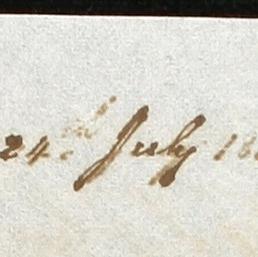 24th July 18